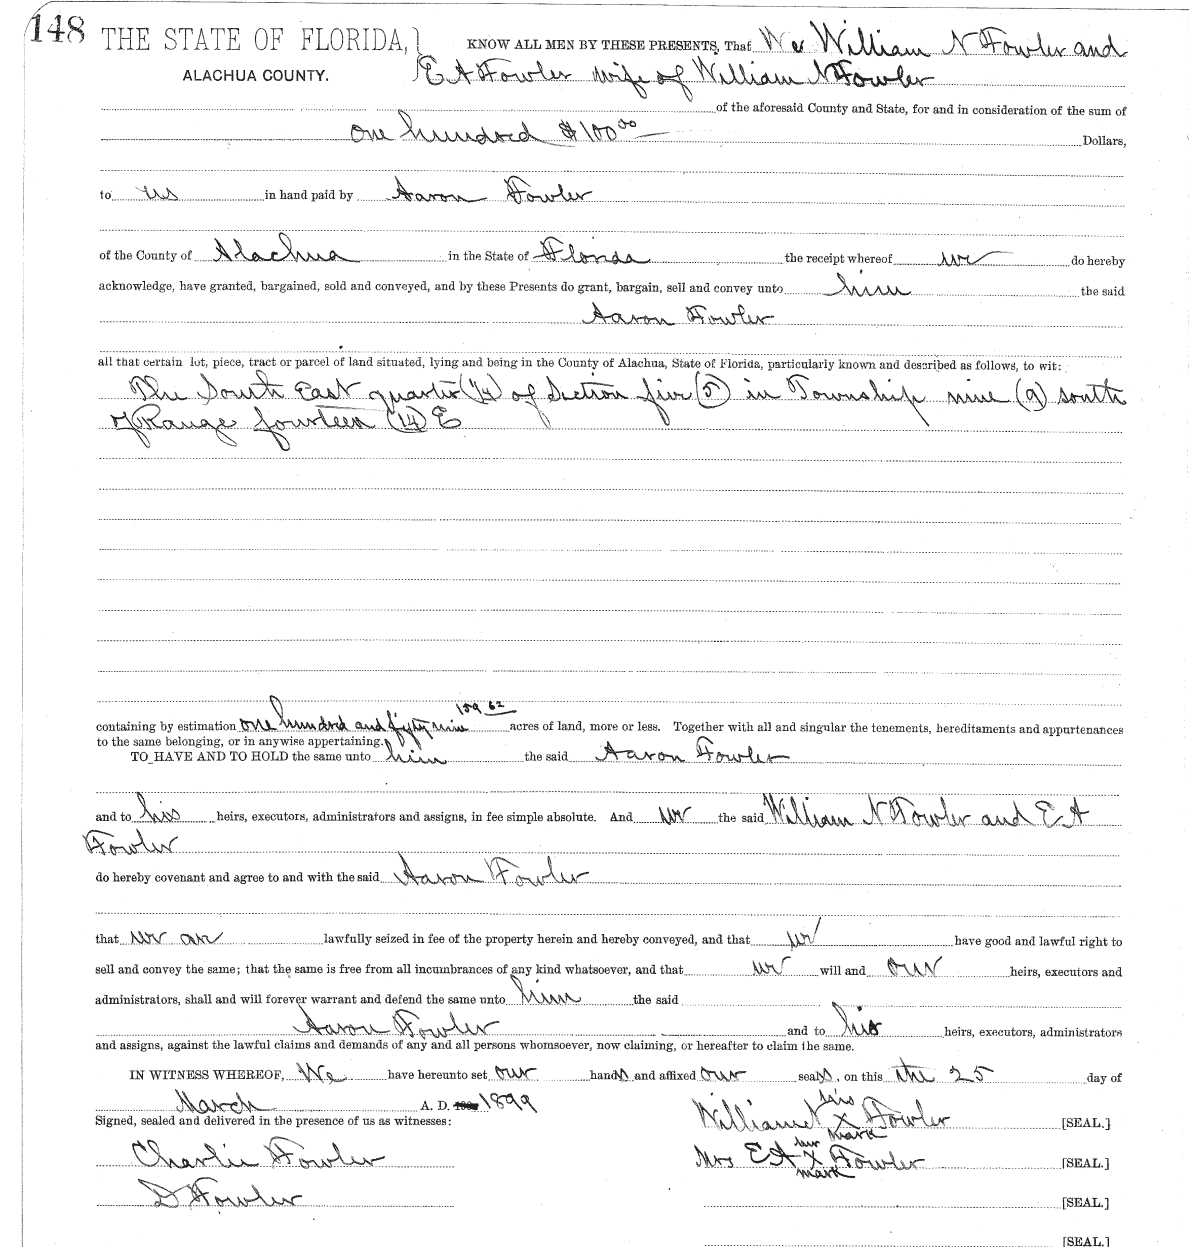 148 THE STATE OF FLORIDA,
ALACHUA COUNTY.
KNOW ALL MEN BY THESE PRESENTS, That We William N Fowler and
E A Fowler wife of William N Fowler
of the aforesaid County and State, for and in consideration of the sum of
one hundred $100 00 Dollars,
to us in hand paid by Aaron Fowler
of the County of Alachua in the State of Florida the receipt whereof we do hereby
acknowledge, have granted, bargained, sold and conveyed, and by these Presents do grant, bargain, sell and convey unto him the said
Aaron Fowler
all that certain lot, piece, tract or parcel of land situated, lying and being in the County of Alachua, State of Florida, particularly known and described as follows, to wit:
The South East quarter (1/4) of Section five (5) in Township nine (9) south
of Range fourteen (14) E
159 62
containing by estimation one hundred and fifty nine acres of land, more or less. Together with all and singular the tenements, hereditaments and appurtenances
to the same belonging, or in anywise appertaining.
TO HAVE AND TO HOLD the same unto him the said Aaron Fowler
and to his heirs, executors, administrators and assigns, in fee simple absolute. And we the said William N Fowler and E A
Fowler
do hereby covenant and agree to and with the said Aaron Fowler
that we are lawfully seized in fee of the property herein and hereby conveyed, and that we have good and lawful right to
sell and convey the same; that the same is free from all incumbrances of any kind whatsoever, and that we will and our heirs, executors and
administrators, shall and will forever warrant and defend the same unto him the said
Aaron Fowler and to his heirs, executors, administrators
and assigns, against the lawful claims and demands of any and all persons whomsoever, now claiming, or hereafter to claim the same.
IN WITNESS WHEREOF, We have hereunto set our hands and affixed our seals, on this the 25 day of
March A. D. 1899
Signed, sealed and delivered in the presence of us as witnesses:
his
William N X Fowler [SEAL.]
mark
Charlie Fowler
her
Mrs E A X Fowler [SEAL.]
mark
D Fowler [SEAL.]
[SEAL.]